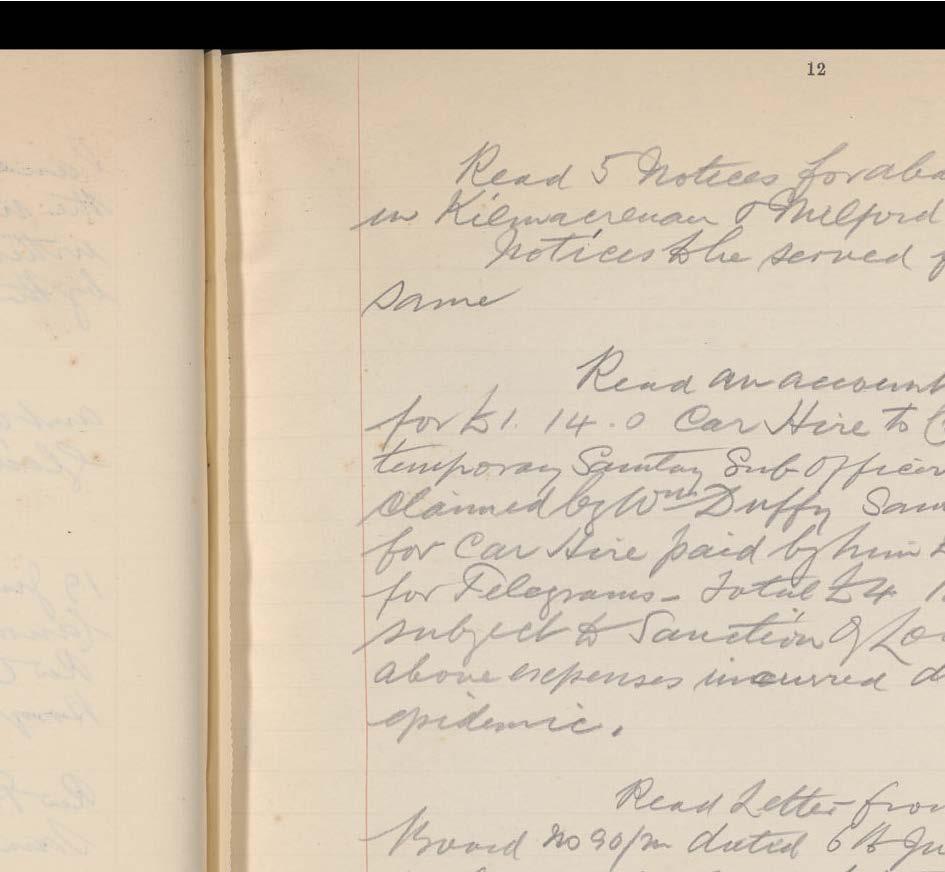 12
Read 5 Notices for aba
in Kilmacrenan & Milford
Notices to be served f
same
Read an account
for £1. 14. 0 Car Hire to
temporay Santay Sub Officer
Claimed by Wm Duffy San
for Car Hire paid by him
for Telegrams - Total £4
subject to Sanction of Lo
above expenses incurred d
epidemic.
Read Letter from
Board No 90/m dated 6th Ju